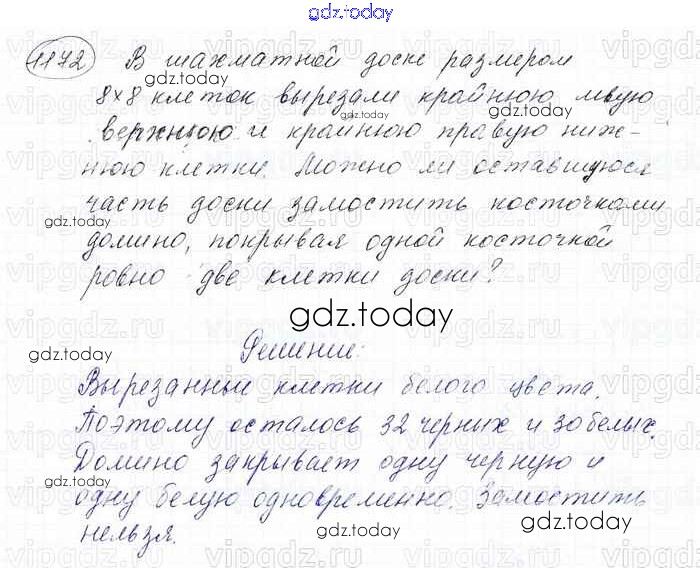 gdz.today
1172 В шахматной доске размером
8×8 клеток вырезали крайнюю левую
верхнюю и крайнюю правую ниж-
нюю клетки. Можно ли оставшуюся
часть доски замостить косточками
домино, покрывая одной косточкой
ровно две клетки доски?
gdz.today
Решение:
Вырезанные клетки белого цвета.
Поэтому осталось 32 черных и 30 белых.
Домино закрывает одну черную и
одну белую одновременно. Замостить
нельзя.